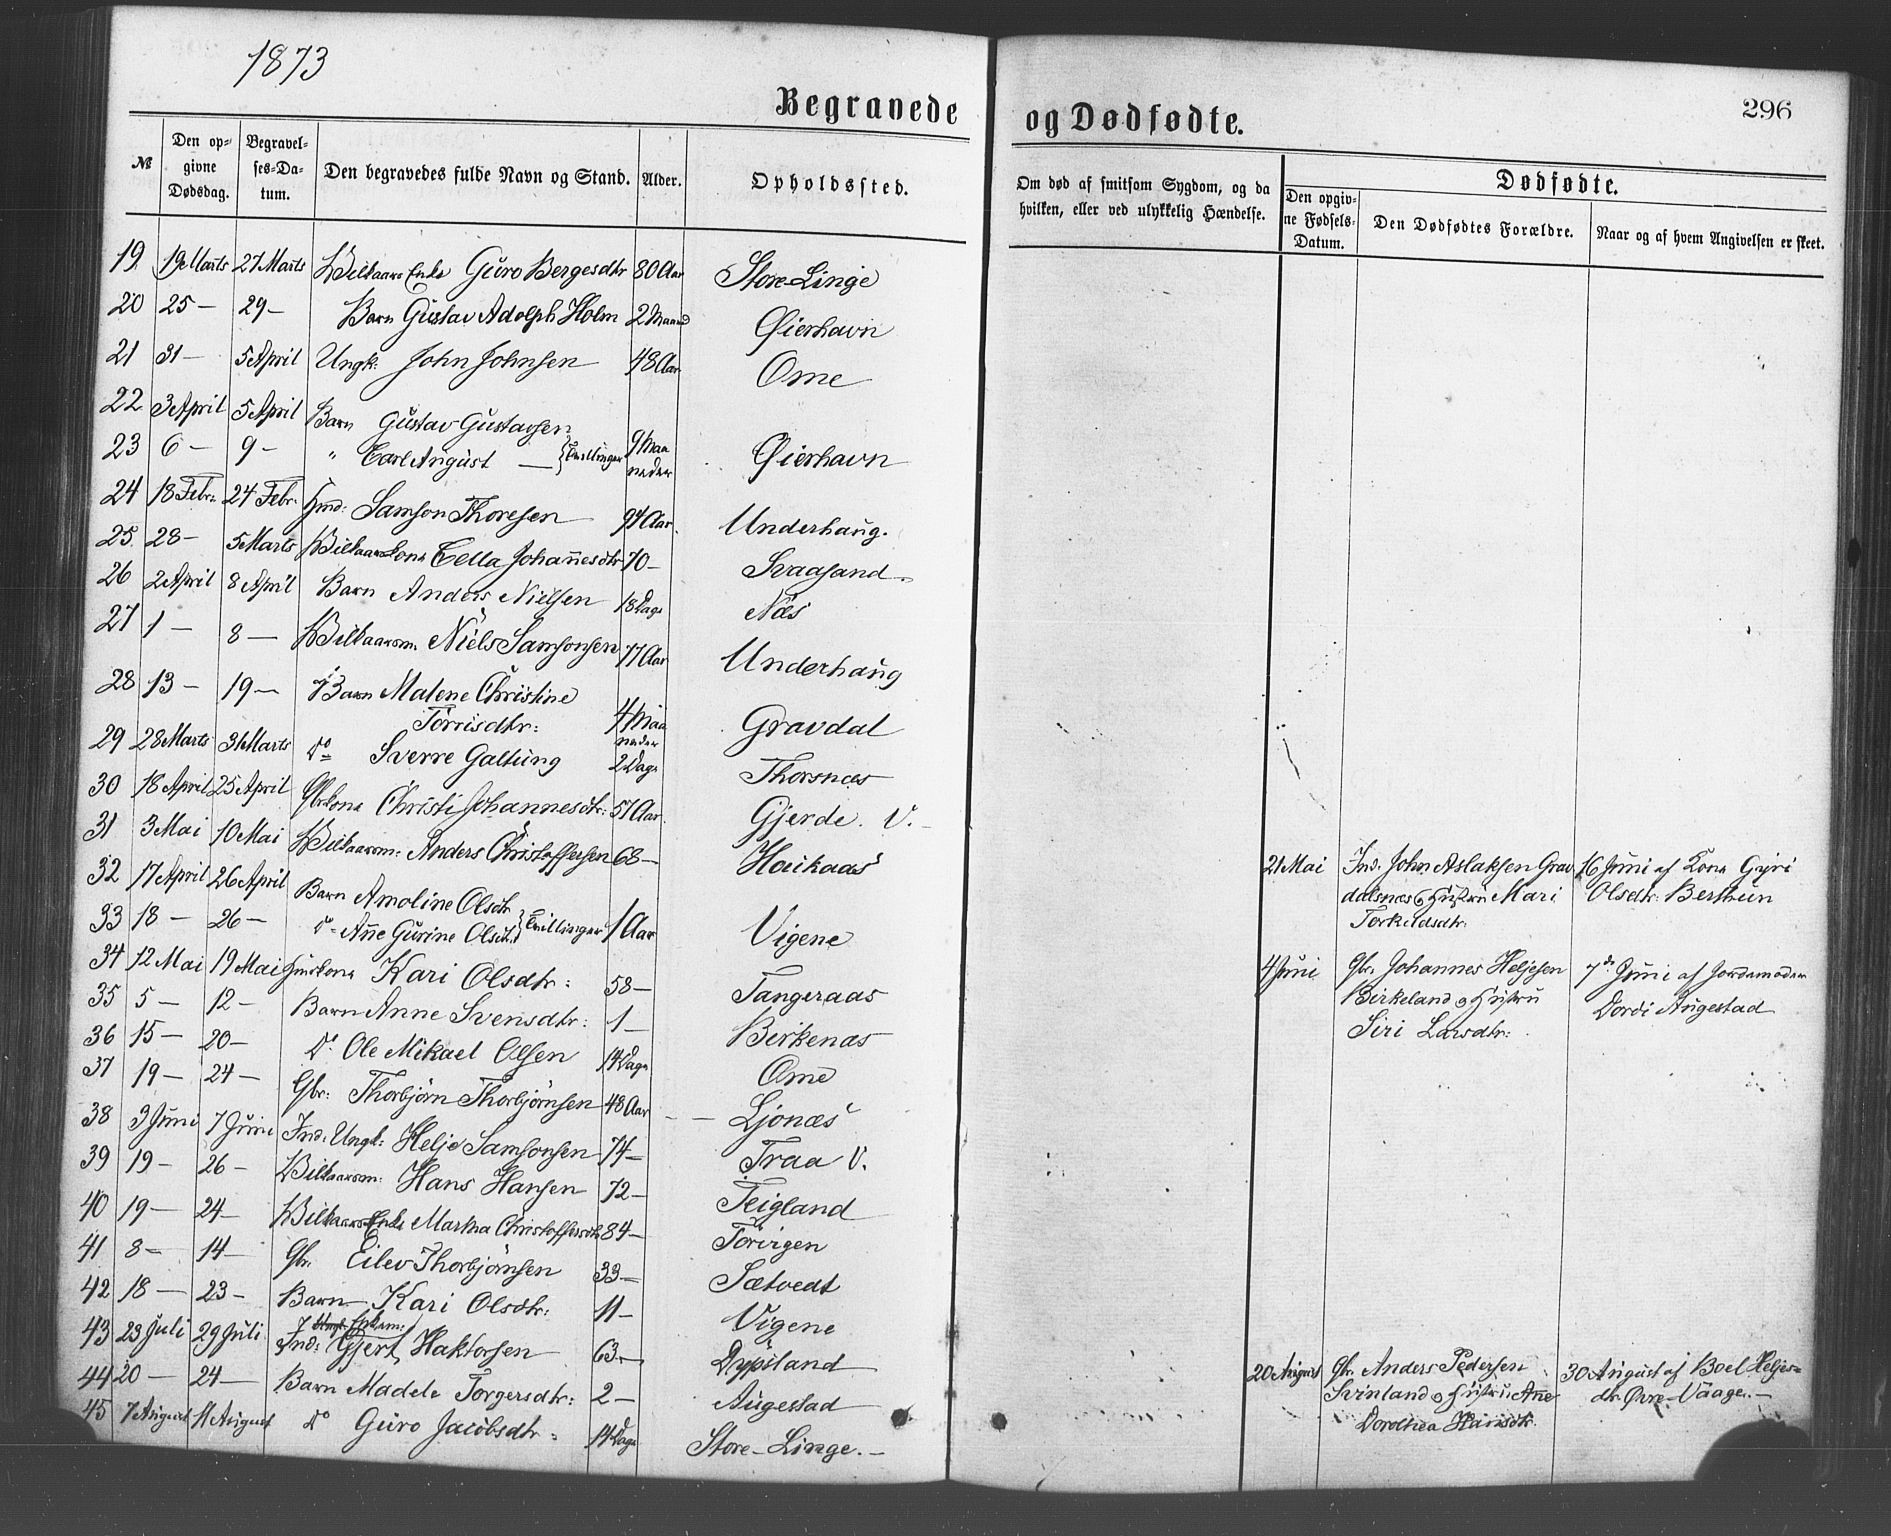 1873
Begravede
og Dødfødte.
296
№
Den op-
givne
Dødsdag.
Begravel-
ses-Da-
tum.
Den begravedes fulde Navn og Stand.
Alder.
Opholdssted.
Om død af smitsom Sygdom, og da
hvilken, eller ved ulykkelig Hændelse.
Dødfødte.
Den opgiv-
ne Fødsels-
Datum.
Den Dødfødtes Forældre.
Naar og af hvem Angivelsen er skeet.
19. 19 Marts 27 Marts Vilkaars Enke Guro Bergesdtr 80 Aar Store-Linge
20 25 — 29 — Barn Gustav Adolph Holm 2 Maand Øierhavn
21 31 — 5 April Ungk: John Johnsen 48 Aar Ome
22 3 April 5 April Barn Gustav Gustavsen
23 6 — 9 — " Carl August — } Tvillinger 9 Maa
neder Øierhavn
24 18 Febr: 24 Febr. Hmd: Samson Thoresen 94 Aar. Underhaug.
25. 28 — 5 Marts Vilkaarskone Cella Johannesdtr 70 — Svaasand
26 2 April 8 April Barn Anders Nielsen 18 Dage Næs
27 1 — 8 — Vilkaarsm. Niels Samsonsen 77 Aar Underhaug
28 13 — 19 — Barn Malene Christine
Torrisdtr: 4 Maa
neder Gravdal
29 28 Marts 31 Marts Do Sverre Galtung 2 Dage Thorsnæs
30 18 April 25 April Gbrkone Christi Johannesdtr: 57 Aar Gjerde. V.
31 3 Mai 10 Mai Vilkaarsm: Anders Christoffersen 68 — Haukaas
32 17 April 26 April Barn Amoline Olsdtr
33 18 — 26 — do Ane Gurine Olsdtr. } Tvillinger 1 Aar Vigene
34 12 Mai 19 Mai Huskone Kari Olsdtr: 58 — Tangeraas
35 5 — 12 — Barn Anne Svensdtr: 1 — Birkenæs
36 15 — 20 — Do Ole Mikael Olsen 14 Dage Ome
37 19 — 24 — Gbr: Thorbjörn Thorbjörnsen 48 Aar Ljonæs
38 3 Juni 7 Juni Ind. Ungk: Helje Samsonsen 74 — Traa V.
39 19 — 26 — Vilkaarsm: Hans Hansen 72 — Teigland
40 19 — 24 — Vilkaars Enke Martha Christoffersdtr 84 — Torvigen
41 8 — 14 — Gbr. Eilev Thorbjörnsen 33 — Sætvedt
42 18 — 23 — Barn Kari Olsdtr: 11 — Vigene
43 23 Juli 29 Juli Enkem:
Ind: Gjert Haktorsen 63 — Dypsland
44 20 — 24 — Barn Madele Torgersdtr: 2 — Augestad
45 7 August 11 August Do Guro Jacobsdtr. 14 Dage Store-Linge. —
21 Mai Ind. John Aslaksen Grav 16 Juni af Kone Gyri
dalsnæs & Hustru Mari Olsdtr. Berthun
Torkildsdtr.
4 Juni Gbr. Johannes Heljesen 7de Juni af Jordemoder
Birkeland & Hustru Dordi Augestad
Siri Larsdtr:
20 August Gbr. Anders Pedersen 30 August af Boel Heljes-
Svinland & Hustru Ane dtr. Øvre-Vaage. —
Dorothea Hansdtr.